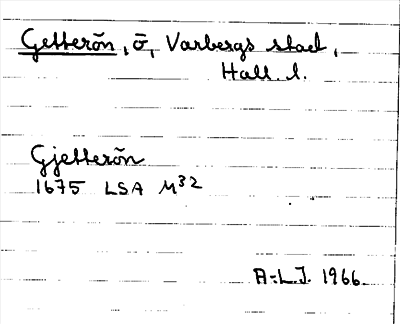 Getterön, ö, Varbergs stad,
Hall. l.
Gjetterön
1675 LSA M32
A-L.J. 1966.